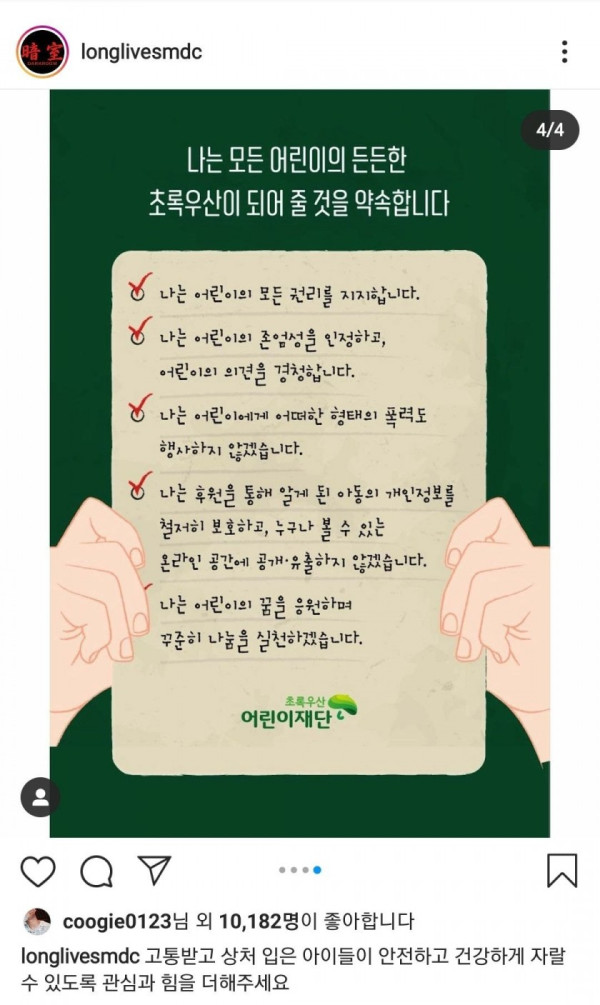 longlivesmdc
暗室
4/4
나는 모든 어린이의 든든한
초록우산이 되어 줄 것을 약속합니다
나는 어린이의 모든 권리를 지지합니다.
나는 어린이의 존엄성을 인정하고,
어린이의 의견을 경청합니다.
나는 어린이에게 어떠한 형태의 폭력도
행사하지 않겠습니다.
나는 후원을 통해 알게 된 아동의 개인정보를
철저히 보호하고, 누구나 볼 수 있는
온라인 공간에 공개·유출하지 않겠습니다.
나는 어린이의 꿈을 응원하며
꾸준히 나눔을 실천하겠습니다.
초록우산
어린이재단
coogie0123님 외 10,182명이 좋아합니다
longlivesmdc 고통받고 상처 입은 아이들이 안전하고 건강하게 자랄
수 있도록 관심과 힘을 더해주세요